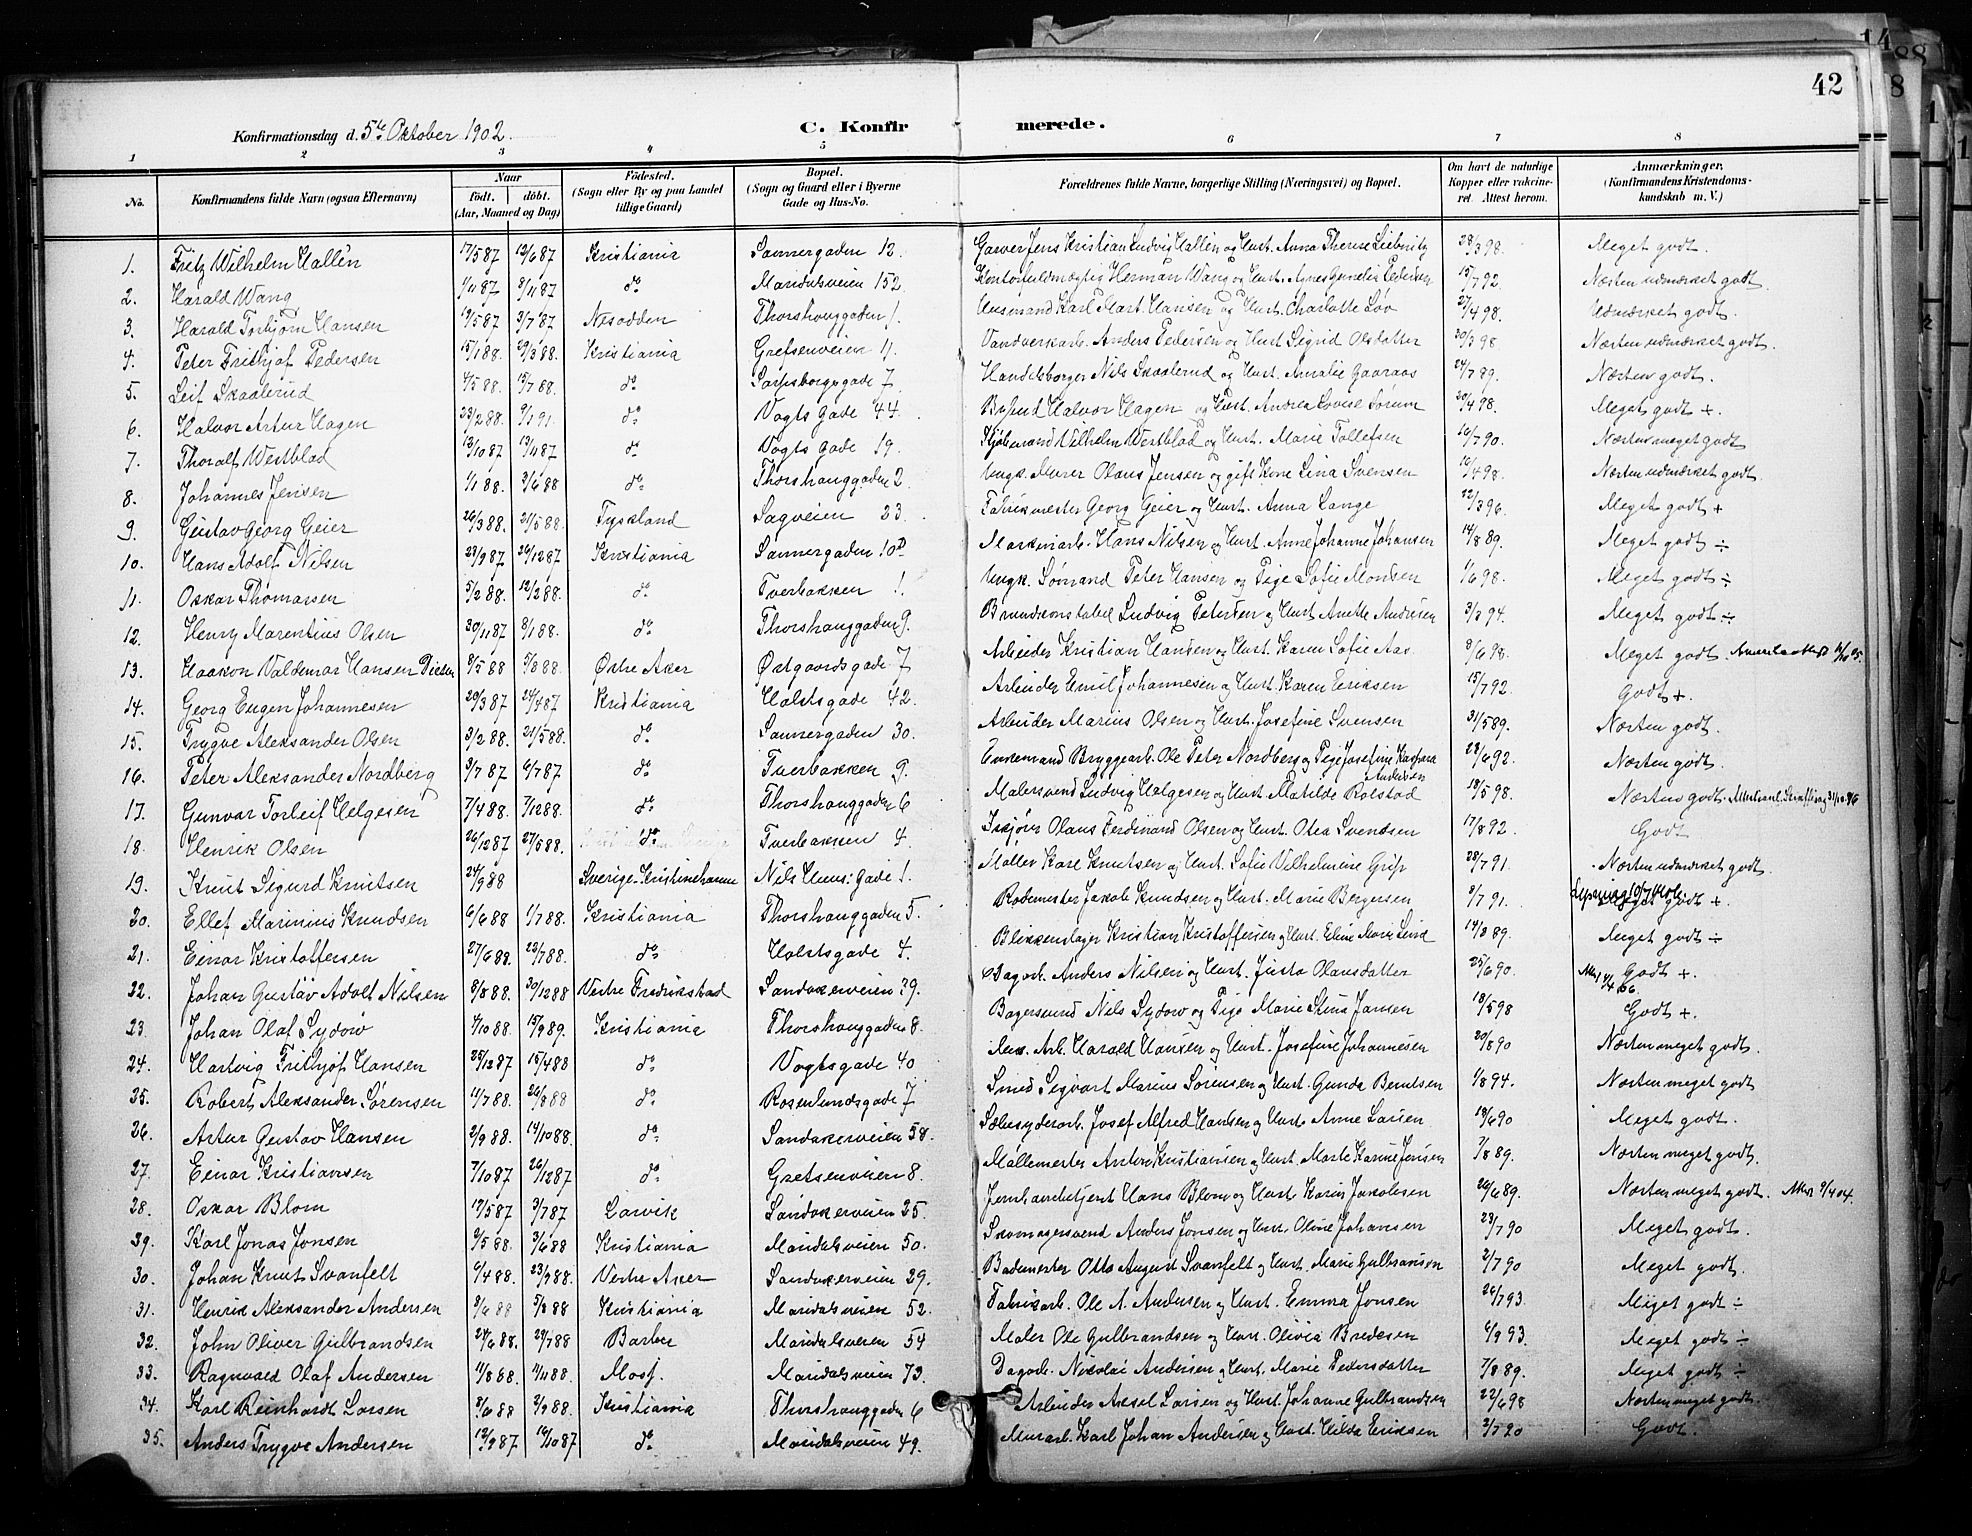 14
88
42
8
Konfirmationsdag d. 5te Oktober 1902.
C. Konfirmerede.
1 2 3 4 5 6 7 8
No. Konfirmandens fulde Navn (ogsaa Efternavn) Naar födt. döbt. (Aar, Maaned og Dag) Födested. (Sogn eller By og paa Landet tillige Gaard) Bopæl. (Sogn og Gaard eller i Byerne Gade og Hus-No. Forældrenes fulde Navne, borgerlige Stilling (Næringsvei) og Bopæl. Om havt de naturlige Kopper eller vaccineret. Attest herom. Anmærkninger. (Konfirmandens Kristendomskundskab m. V.)
1. Fritz Wilhelm Hallén 17/5 87 19/6 87 Kristiania Sannergaden 12. Garver Jens Kristian Ludvig Hallén og Hust. Anna Therese Liebnitz 28/3 98. Meget godt.
2. Harald Wang 1/11 87 8/11 87 do Maridalsveien 152. Kontorfuldmægtig Herman Wang og Hust. Agnes Pedersen 15/7 92. Næsten udmærket godt.
3. Harald Torbjørn Hansen 19/5 87 3/7 87 Nesodden Thorshauggaden 1. Husmand Karl Mart. Hansen og Hust. Charlotte 27/4 98. Udmærket godt.
4. Peter Frithjof Pedersen 15/1 88. 29/3 88. Kristiania Grefsenveien 11. Vandverksarb. Anders Pedersen og Hust Sigrid Olsdatter 30/3 98. Næsten udmærket godt.
5. Leif Skaalerud 4/5 88. 15/7 88. do Sarpsborggade 7 Handelsborger Nils Skaalerud og Hust. Amalie Gaaraas 24/7 89. Næsten godt.
6. Halvor Artur Hagen 23/2 88. 9/1 91. do Vogts gade 44. Halvor Hagen og Hust. Andrea Lovise Sørum 20/4 98. Meget godt +.
7. Thoralf Westblad 13/10 87 13/11 87 do Vogts gade 19. Wilhelm Westblad og Hust. Marie Tollefsen 16/7 90. Næsten meget godt
8. Johannes Jensen 1/1 88. 3/6 88 do Thorshauggaden 2. Ungk. Murer Olaus Jensen og gift Kone Lina Svensen 16/4 98. Næsten udmærket godt
9. Gustav Georg Geier 26/3 88. 21/5 88. Tyskland Sagveien 23. Fabrikmester Georg Geier og Hust. Anna Lange 22/3 96. Meget godt +
10. Hans Adolf Nilsen 23/9 87 26/12 87 Kristiania Sannergaden 10 Maskinarb. Hans Nilsen og Hust. Anne Johanne Johansen 14/8 89. Meget godt ÷
11. Oskar Thomassen 5/2 88. 12/2 88. do Tverbakken 1. Ungk. Sømand Peter Hansen og Pige Sofie Monsen 1/6 98. Meget godt ÷
12. Henry Marentius Olsen 30/11 87 8/1 88. do Thorshauggaden 9. Brandkonstabel Ludvig Petersen og Hust. Anette Andersen 3/3 94. Meget godt ÷
13. Haakon Valdemar Hansen 9/5 88 5/8 88. Østre Aker Østgaardsgade 7 Arbeider Kristian Hansen og Hust. Karen Sofie Aas 8/6 98. Meget godt.
14. Georg Eugen Johannesen 20/3 87 24/4 87 Kristiania Holstsgade 42. Arbeider Emil Johannesen og Hust. Karen Eriksen 15/7 92. Godt +.
15. Trygve Aleksander Olsen 3/2 88. 21/5 88. do Sannergaden 30. Arbeider Marius Olsen og Hust. Josefine Svensen 31/5 89. Næsten godt.
16. Peter Aleksander Nordberg 3/7 87 6/7 87 do Tverbakken 9. Enkemand Bryggearb. Ole Peter Nordberg og Pige Josefine Kaspara Andersen 28/6 92. Næsten godt.
17. Gunvar Torleif Helgesen 7/4 88. 7/12 88. do Thorshauggaden 6 Malersvend Ludvig Helgesen og Hust. Matilde Rolstad 18/5 98. Næsten godt.
18. Henrik Olsen 26/12 87 27/5 88. do Tverbakken 4. Olaus Ferdinand Olsen og Hust. Otea Svendsen 17/8 92. Godt
19. Knut Sigurd Knutsen 24/9 88 Sverige-Kristinehamn Nils Huus: Gade 1. Møller Karl Knutsen og Hust. Sofie Vilhelmine Grip 28/7 91. Næsten udmærket godt.
20. Ellef Marinius Knudsen 6/6 88 1/7 88. Kristiania Thorshauggaden 5. Rodemester Jakob Knudsen og Hust. Marie Bergersen 8/7 91. godt +.
21. Einar Kristoffersen 27/6 88. 23/7 88. do Holstsgade 4. Blikkenslager Kristian Kristoffersen og Hust. Eline Marie Lund 14/3 89. Meget godt ÷
22. Johan Gustav Adolf Nilsen 8/8 88. 30/12 88 Vestre Fredrikstad Sandakerveien 39. Dagarb. Anders Nilsen og Hust. Justa Olausdatter 25/6 90. Godt +.
23. Johan Olaf Sydow 4/10 88. 15/9 89. Kristiania Thorshauggaden 8. Bagersvend Nils Sydow og Pige Marie Stine Jansen 18/5 98 Godt +.
24. Hartvig Frithjof Hansen 25/12 87 15/4 88 do Vogtsgade 40. Arb. Harald Hansen og Hust. Josefine Johannesen 20/8 90 Næsten meget godt.
25. Robert Aleksander Sørensen 11/7 88. 26/8 88 do Rosenlundsgade 7 Smed Segvart Marius Sørensen og Hust. Gunda Berntsen 1/8 94. Næsten meget godt
26. Artur Gustav Hansen 2/9 88. 14/10 88. do Sandakerveien 58. Sæbesyderarb. Josef Alfred Hansen og Hust. Anne Larsen 19/6 90 Meget godt.
27. Einar Kristiansen 7/10 87 26/12 87 do Grefsenveien 8. Møllemester Anton Kristiansen og Hust. Marte Karine Jensen 7/8 89. Næsten meget godt.
28. Oskar Blom 17/5 87 3/7 87 Larvik Sandakerveien 25. Jernbanebetjent Hans Blom og Hust. Karin Jakobsen 26/6 89. Næsten meget godt. Attest 9/4 04.
29. Karl Jonas Jonsen 9/5 88. 3/6 88 Kristiania Maridalsveien 50. Skomagersvend Anders Jonsen og Hust. Oline Johansen 23/7 90 Meget godt.
30. Johan Knut Svanfelt 6/4 88. 23/9 88. Vestre Aker Sandakerveien 29. Bademester Otto August Svanfelt og Hust. Marie Gulbransen 2/7 90 Meget godt.
31. Henrik Aleksander Andersen 8/6 88 5/8 88 Kristiania Maridalsveien 52. Fabrikarb. Ole A. Andersen og Hust. Emma Jonsen 26/7 93. Meget godt ÷
32. John Oliver Gulbrandsen 24/6 88. 29/7 88 Barbu Maridalsveien 54 Maler Ole Gulbrandsen og Hust. Olivia Bredesen 6/9 93. Meget godt ÷
33. Ragnvald Olaf Andersen 11/8 88. 11/11 88. Moss. Maridalsveien 73. Dagarb. Nikolai Andersen og Hust. Marie Pedersdatter 7/8 89. Meget godt ÷
34. Karl Reinhardt Larsen 8/6 88 2/9 88. Kristiania Thorshauggaden 6 Arbeider Aksel Larsen og Hust. Johanne Gulbrandsen 22/6 98 Næsten meget godt.
35. Anders Trygve Andersen 12/9 87 16/10 87 do Maridalsveien 49. Murarb. Karl Johan Andersen og Hust. Hilda Eriksen 2/7 90 Godt.